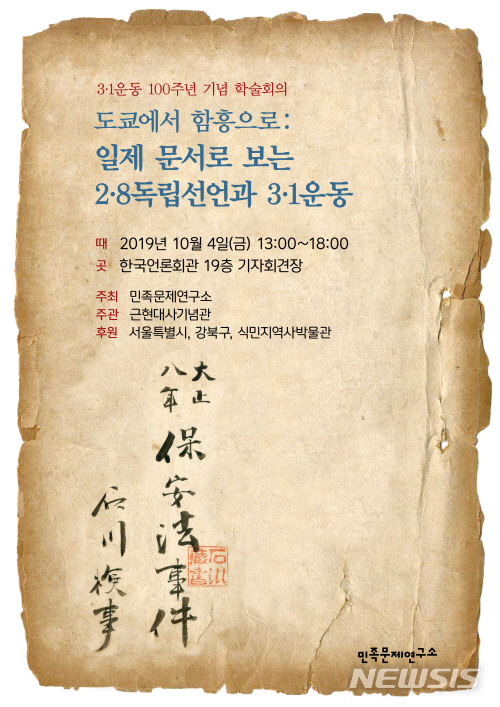 3·1운동 100주년 기념 학술회의
도쿄에서 함흥으로:
일제 문서로 보는
2·8독립선언과 3·1운동
때 2019년 10월 4일(금) 13:00~18:00
곳 한국언론회관 19층 기자회견장
주최 민족문제연구소
주관 근현대사기념관
후원 서울특별시, 강북구, 식민지역사박물관
大正
八年
保安法事件
石川検事
石川
蔵書
민족문제연구소
NEWSIS